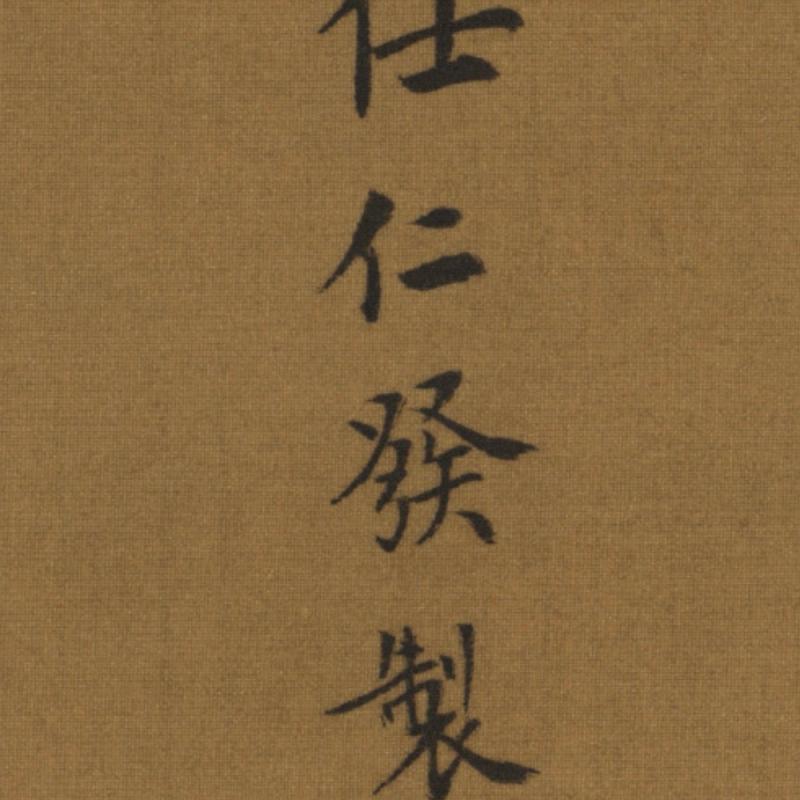 任仁發製